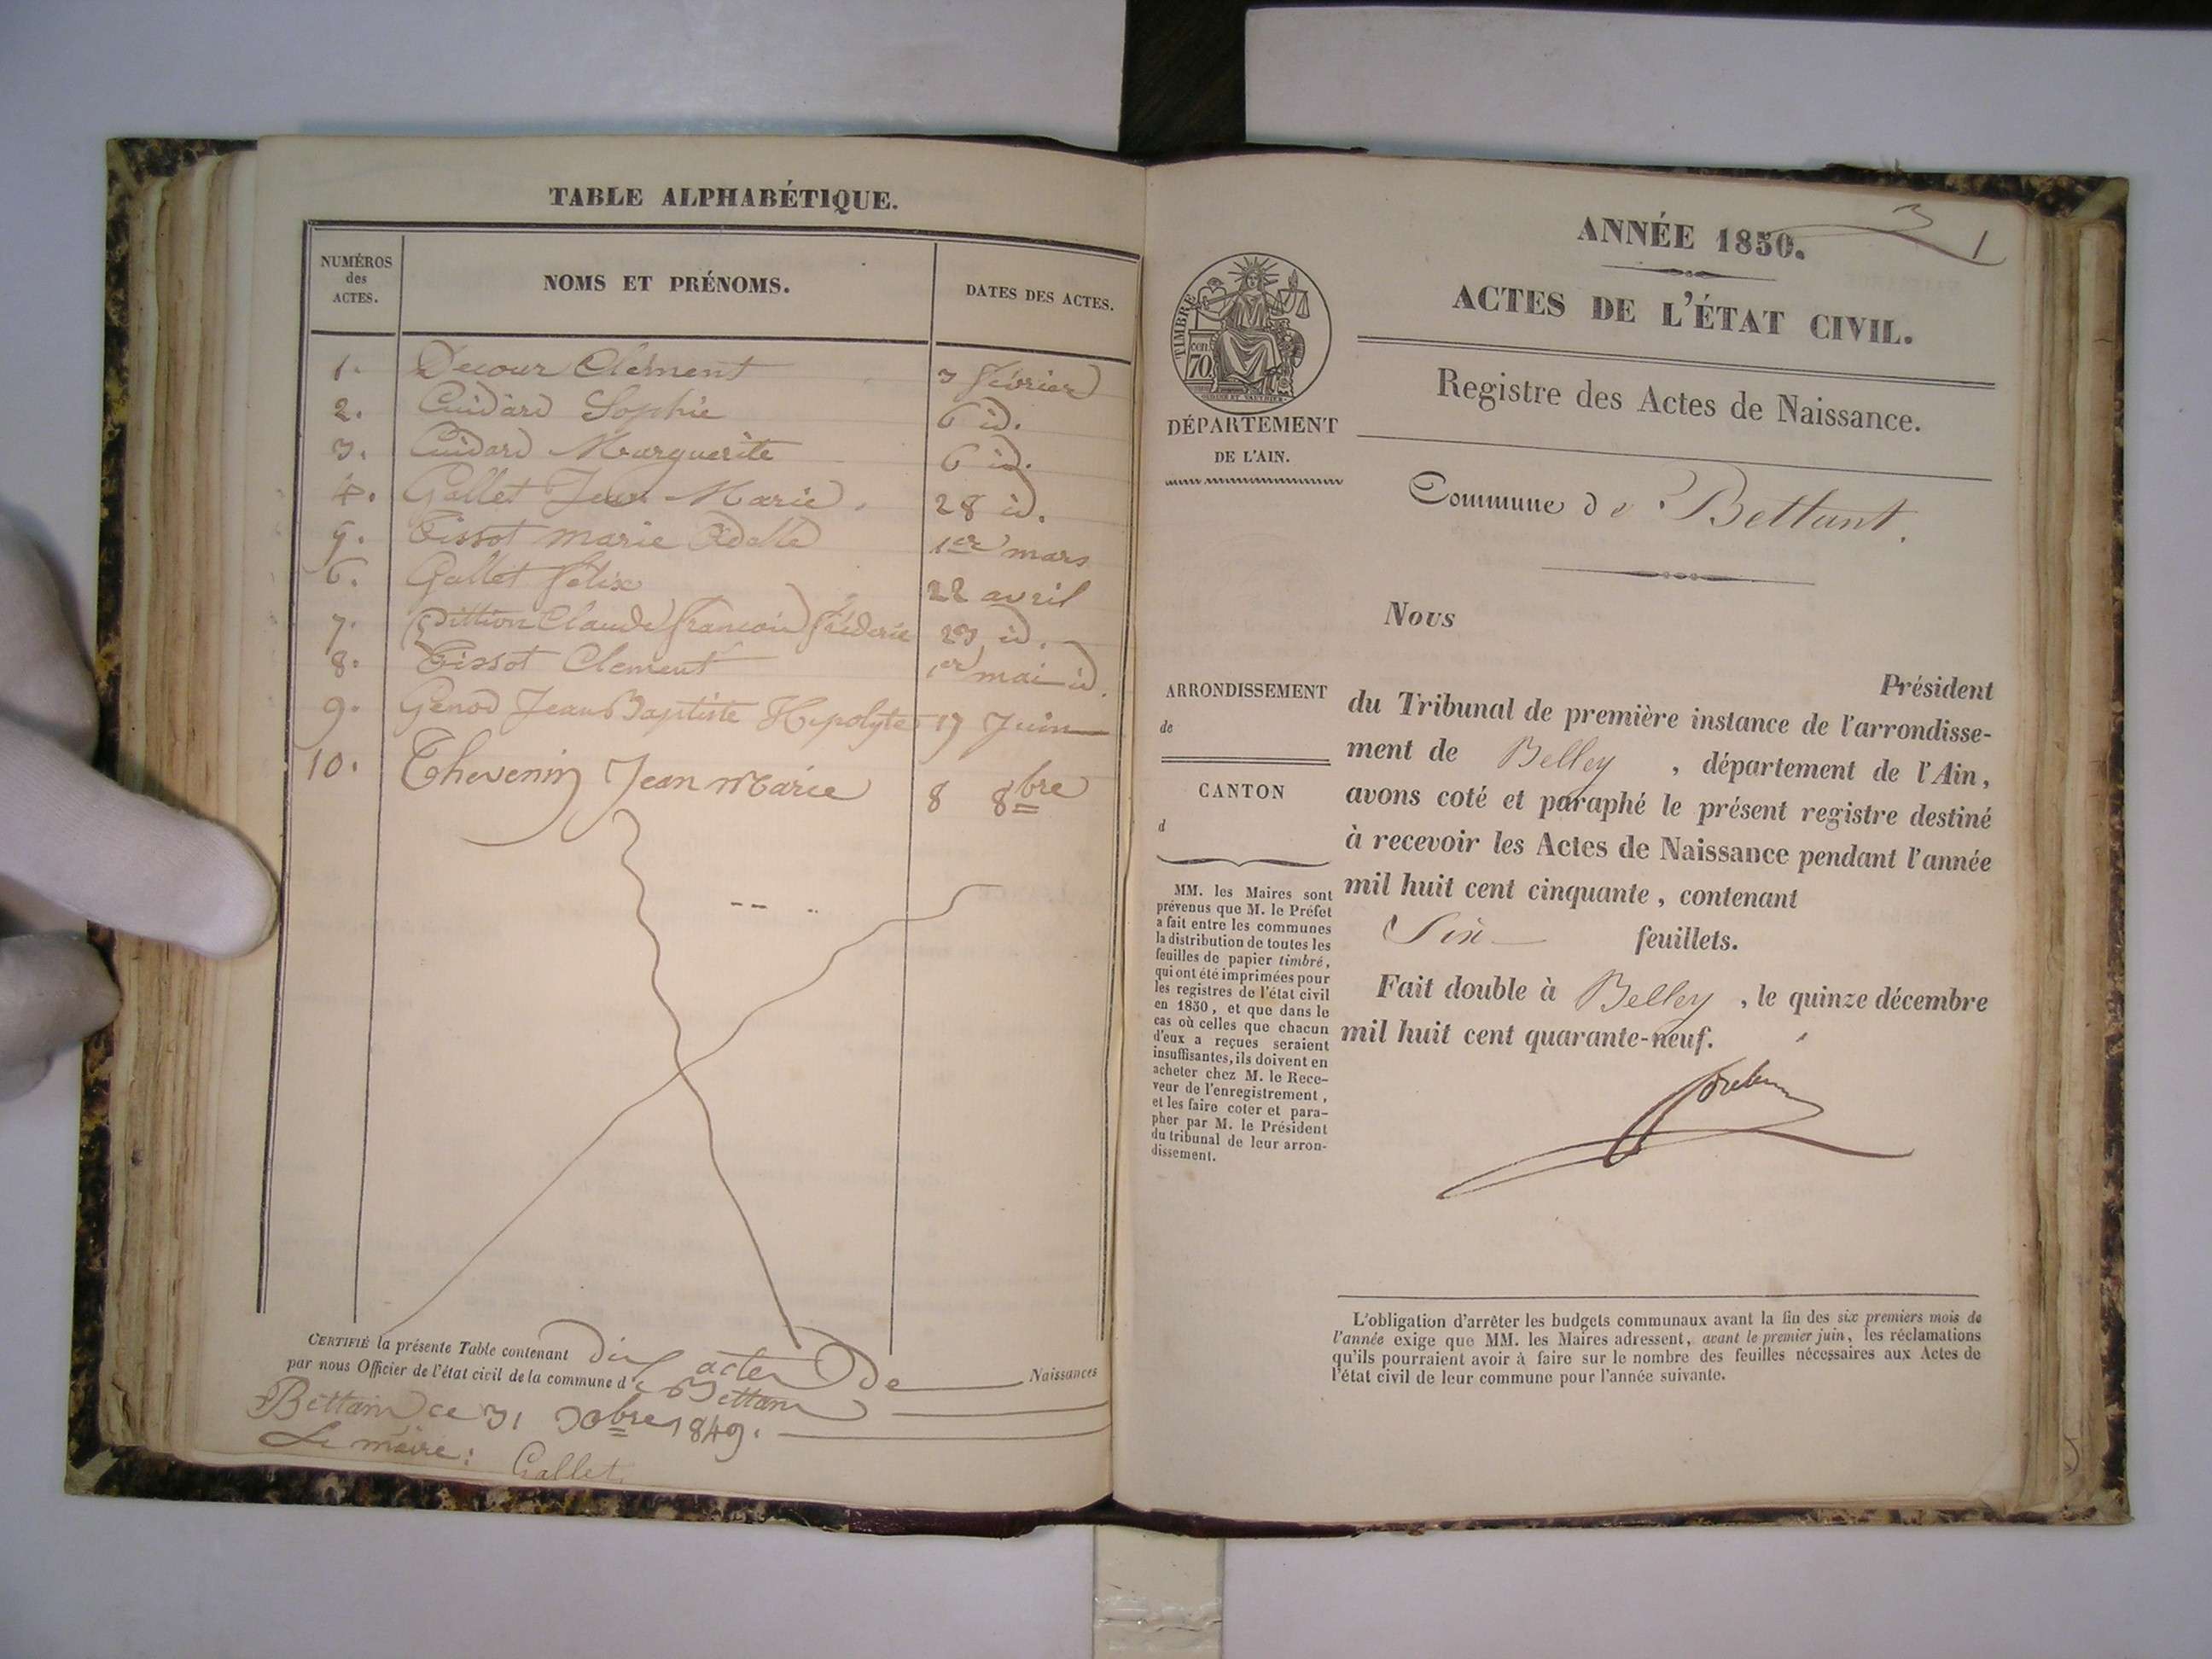 TABLE ALPHABÉTIQUE.
NUMÉROS
des
ACTES.
NOMS ET PRÉNOMS.
DATES DES ACTES.
1. Decour Clément 3 février
2. Cuidard Sophie 6 id.
3. Cuidard Marguerite 6 id.
4. Gallet Jean Marie. 28 id.
5. Tissot marie Adelle 1er mars
6. Gallet félix 22 avril
7. Pittion Claude françois fréderic 23 id.
8. Tissot Clement 1er mai id.
9. Genod Jean Baptiste Hipolyte 19 Juin
10. Thevenin Jean Marie 8 8bre
CERTIFIÉ la présente Table contenant dix actes De Naissances
par nous Officier de l'état civil de la commune de Bettan
Bettan ce 31 Xbre 1849.
Le maire: Gallet
3
1
ANNÉE 1850.
ACTES DE L'ÉTAT CIVIL.
Registre des Actes de Naissance.
TIMBRE
70 cen.
DÉPARTEMENT
DE L'AIN.
Commune de Bettant.
Nous
Président
ARRONDISSEMENT
de
CANTON
d
du Tribunal de première instance de l'arrondisse-
ment de Belley , département de l'Ain,
avons coté et paraphé le présent registre destiné
à recevoir les Actes de Naissance pendant l'année
mil huit cent cinquante , contenant
Six feuillets.
Fait double à Belley , le quinze décembre
mil huit cent quarante-neuf.
MM. les Maires sont
prévenus que M. le Préfet
a fait entre les communes
la distribution de toutes les
feuilles de papier timbré,
qui ont été imprimées pour
les registres de l'état civil
en 1850 , et que dans le
cas où celles que chacun
d'eux a reçues seraient
insuffisantes, ils doivent en
acheter chez M. le Rece-
veur de l'enregistrement ,
et les faire coter et para-
pher par M. le Président
du tribunal de leur arron-
dissement.
L'obligation d'arrêter les budgets communaux avant la fin des six premiers mois de
l'année exige que MM. les Maires adressent, avant le premier juin, les réclamations
qu'ils pourraient avoir à faire sur le nombre des feuilles nécessaires aux Actes de
l'état civil de leur commune pour l'année suivante.